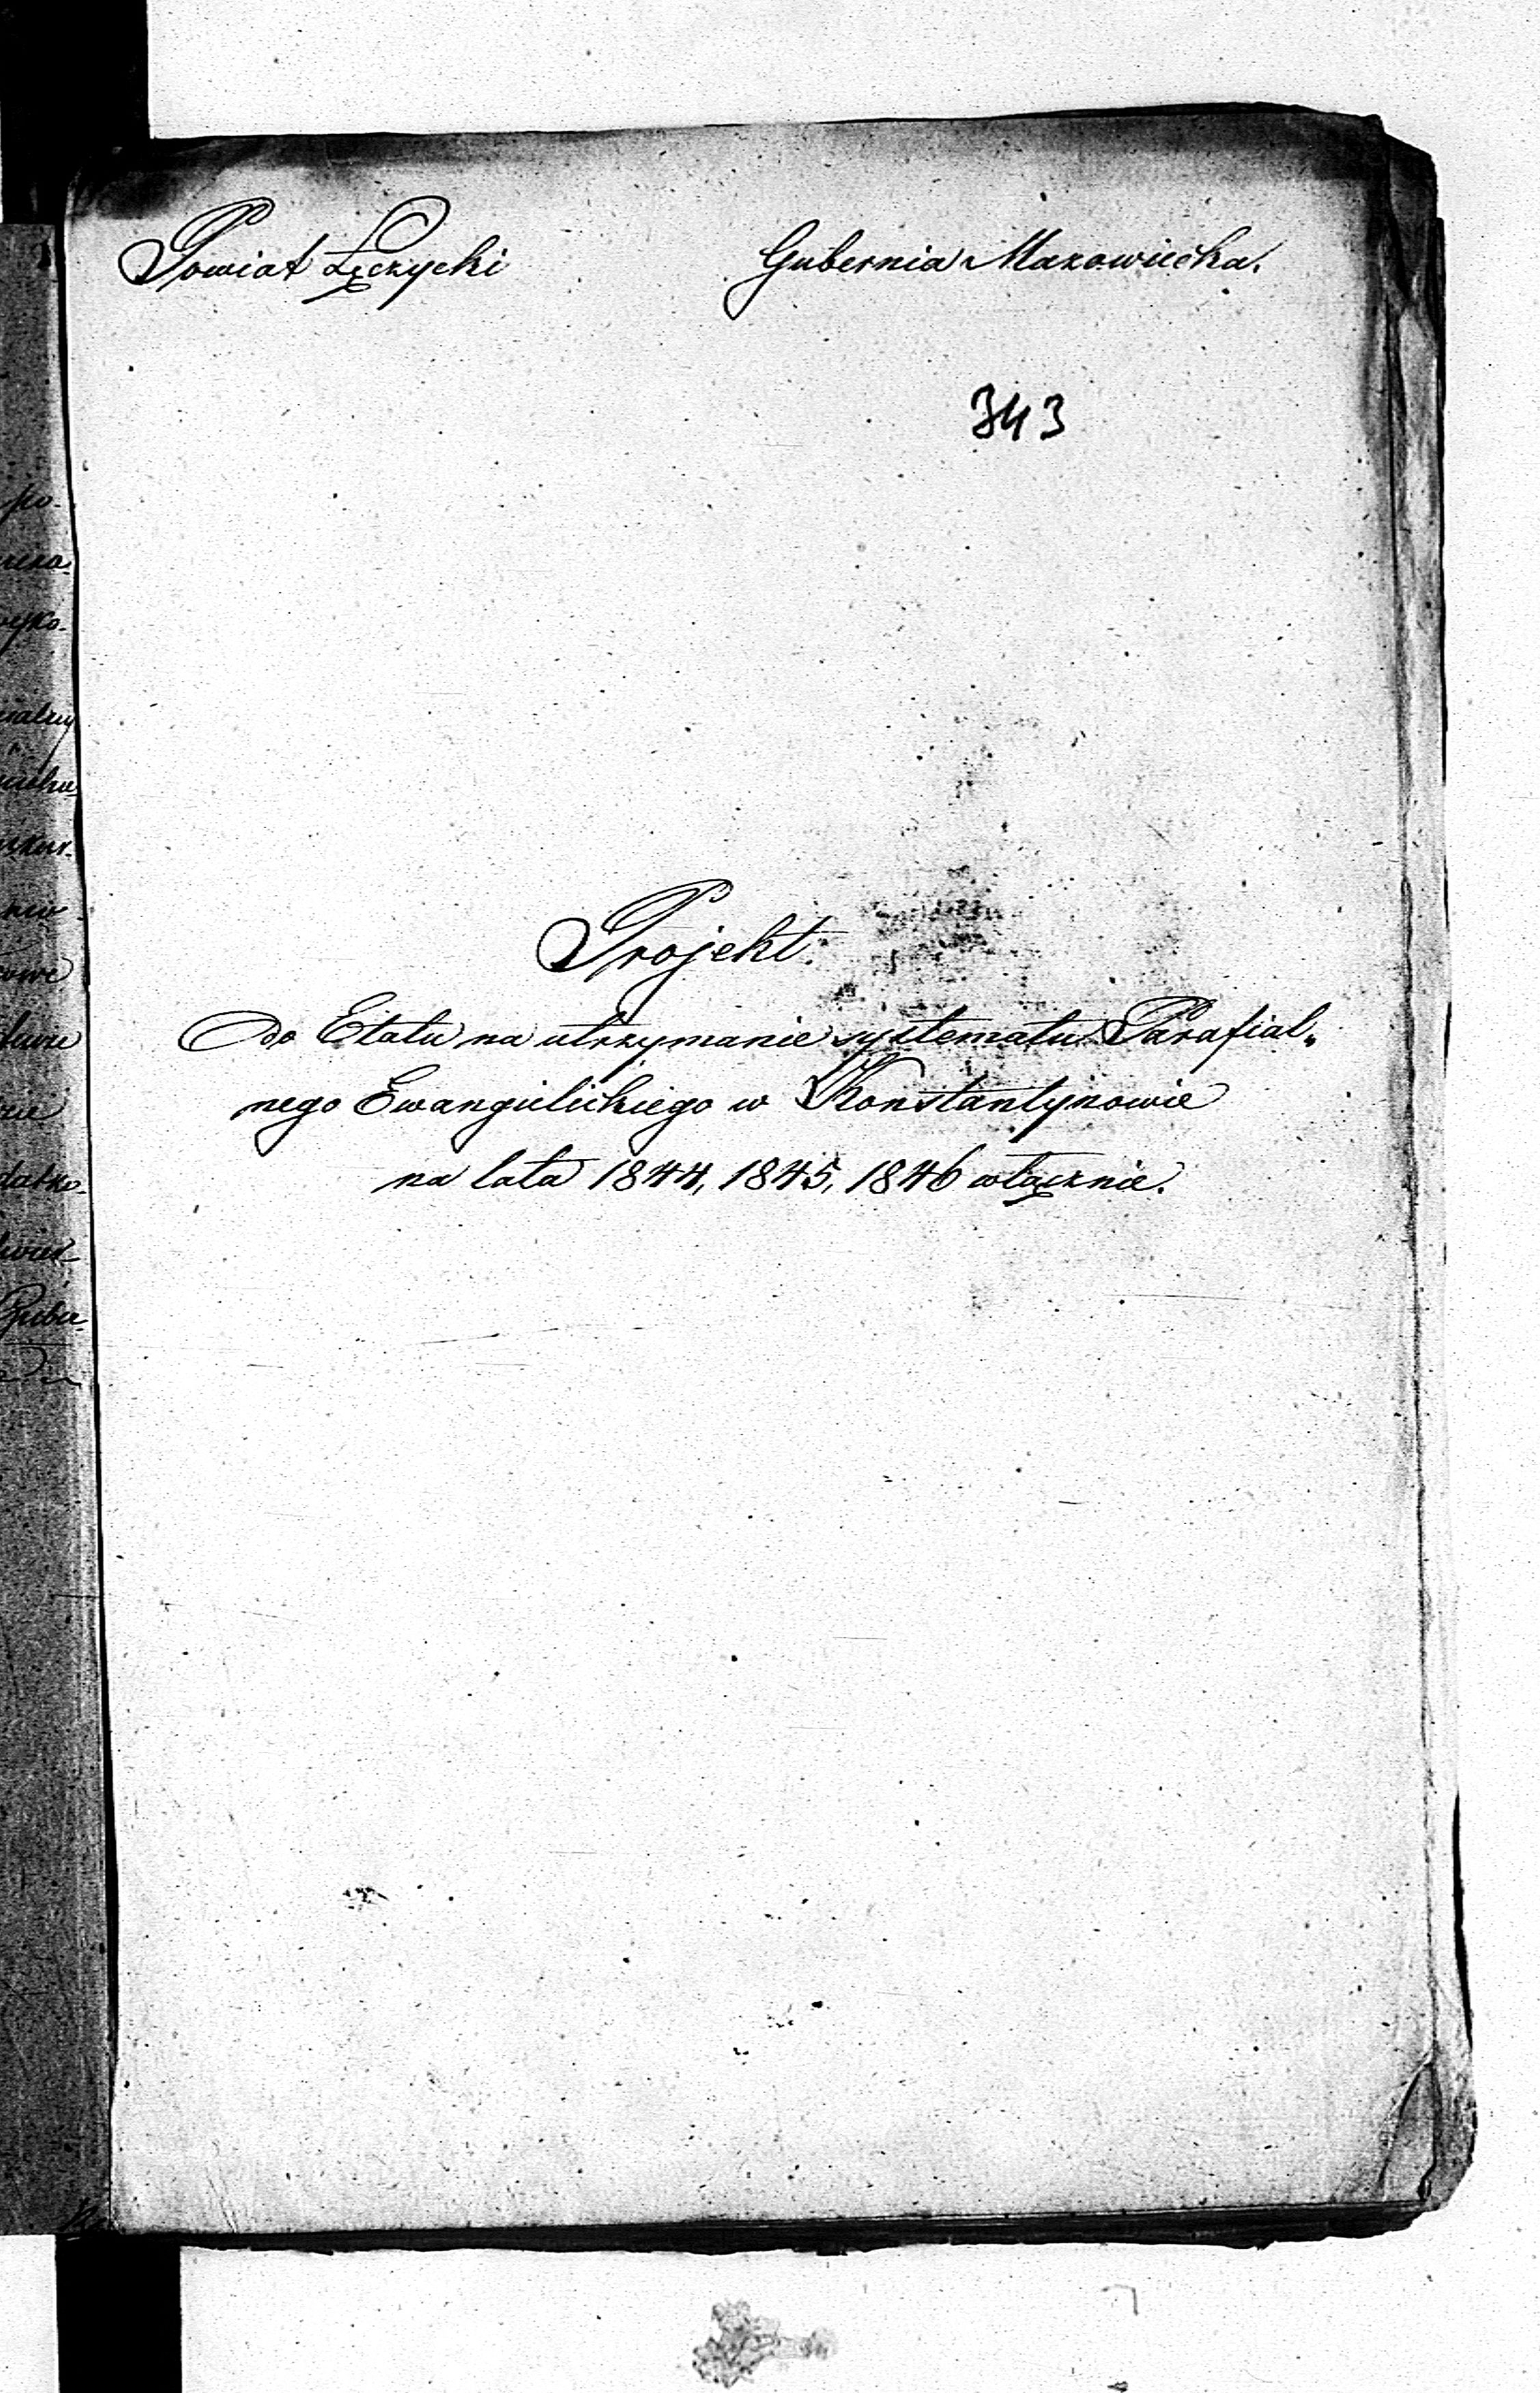 Powiat Łęczycki
Gubernia Mazowiecka.
343
Projekt.
Do Etatu na utrzymanie systematu Parafial„
nego Ewangielickiego w Konstantynowie
na lata 1844, 1845, 1846 włącznie.